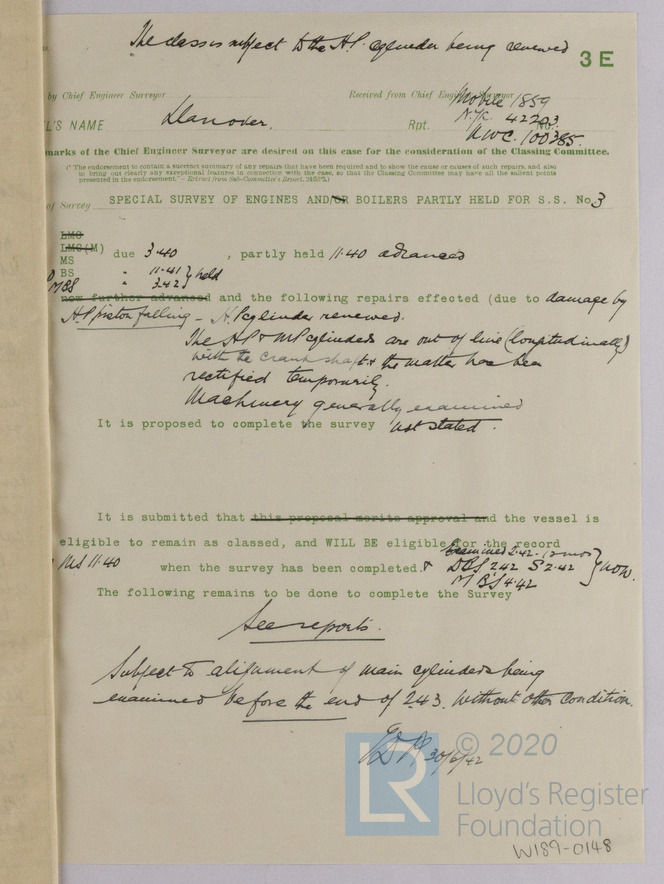 The class is subject to the H.P. cylinder being renewed
3 E
by Chief Engineer Surveyor
Received from Chief Engineer Surveyor
Mobile 1859
L'S NAME Llanover. Rpt. N.Yk. 42203 No.
NWC. 100385.
marks of the Chief Engineer Surveyor are desired on this case for the consideration of the Classing Committee.
(" The endorsement to contain a succinct summary of any repairs that have been required and to show the cause or causes of such repairs, and also
to bring out clearly any exceptional features in connection with the case, so that the Classing Committee may have all the salient points
presented in the endorsement."— Extract from Sub-Committee's Report,
of Survey SPECIAL SURVEY OF ENGINES AND/OR BOILERS PARTLY HELD FOR S.S. No 3
LMC
LMC(M)
MS due 3.40 , partly held 11.40 advanced
BS " 11.41 } held
MBS " 3.42
now further advanced and the following repairs effected (due to damage by
H.P. piston falling - H.P. cylinder renewed.
The H.P. & M.P. cylinders are out of line (longitudinally)
with the crank shaft & the matter has been
rectified temporarily.
Machinery generally examined
It is proposed to complete the survey not stated.
It is submitted that this proposal merits approval and the vessel is
eligible to remain as classed, and WILL BE eligible for the record
MS 11.40 when the survey has been completed. & Examined 2.42 - 12 mos
DBS 2.42 S 2.42 } now.
MBS 4.42
The following remains to be done to complete the Survey
See reports.
Subject to alignment of main cylinders being
examined before the end of 2.43. without other condition.
30/6/42
© 2020
LR
Lloyd's Register
Foundation
W189-0148